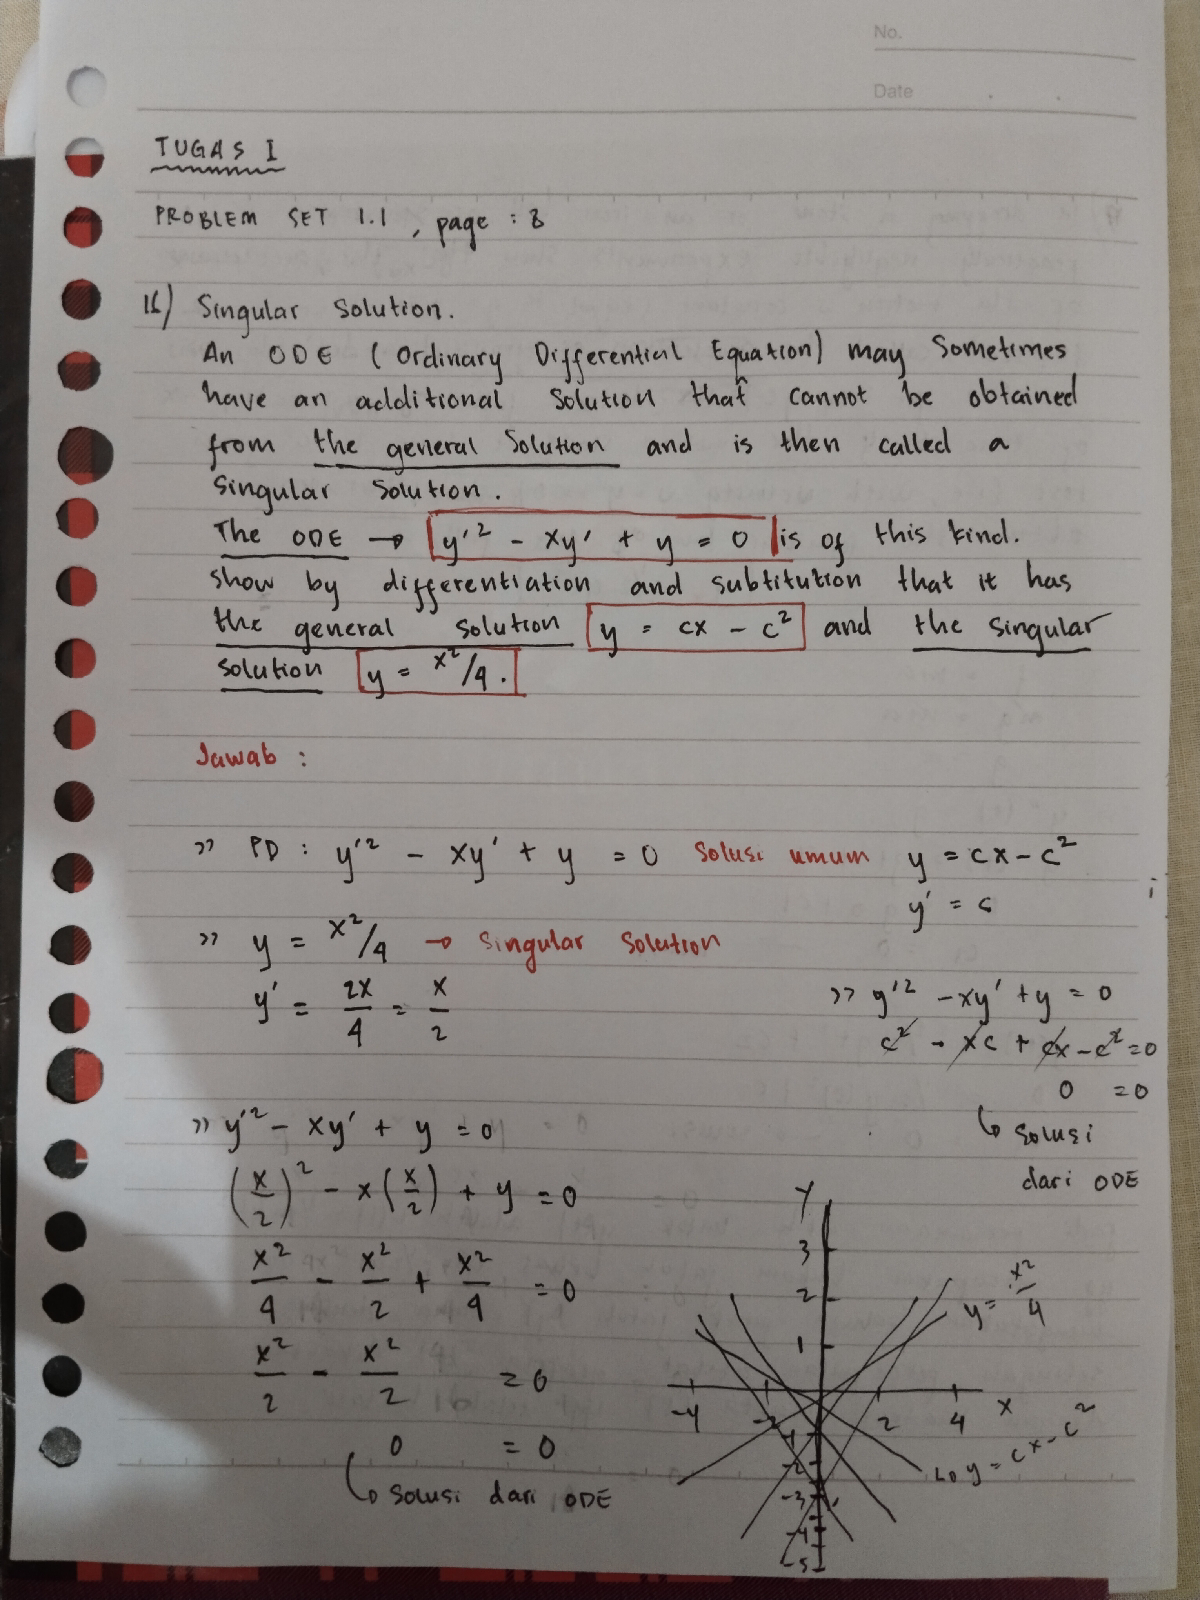 No.
Date
TUGAS I
PROBLEM SET 1.1, page : 8
16) Singular Solution.
An ODE (Ordinary Differential Equation) may Sometimes
have an additional Solution that cannot be obtained
from the general Solution and is then called a
Singular Solution.
The ODE → y'² - xy' + y = 0 is of this kind.
show by differentiation and subtitution that it has
the general solution y = cx - c² and the singular
solution y = x²/4.
Jawab :
>> PD : y'² - xy' + y = 0 Solusi umum y = cx - c²
y' = c
>> y = x²/4 → Singular Solution
y' = 2x/4 = x/2
>> y'² - xy' + y = 0
c² - xc + cx - c² = 0
0 = 0
↳ Solusi
dari ODE
>> y'² - xy' + y = 0
(x/2)² - x(x/2) + y = 0
x²/4 - x²/2 + x²/4 = 0
x²/2 - x²/2 = 0
0 = 0
↳ Solusi dari ODE
Y
3
2
1
y = x²/4
-4 -2 2 4 x
-1
-2
-3
-4
-5
↳ y = cx - c²